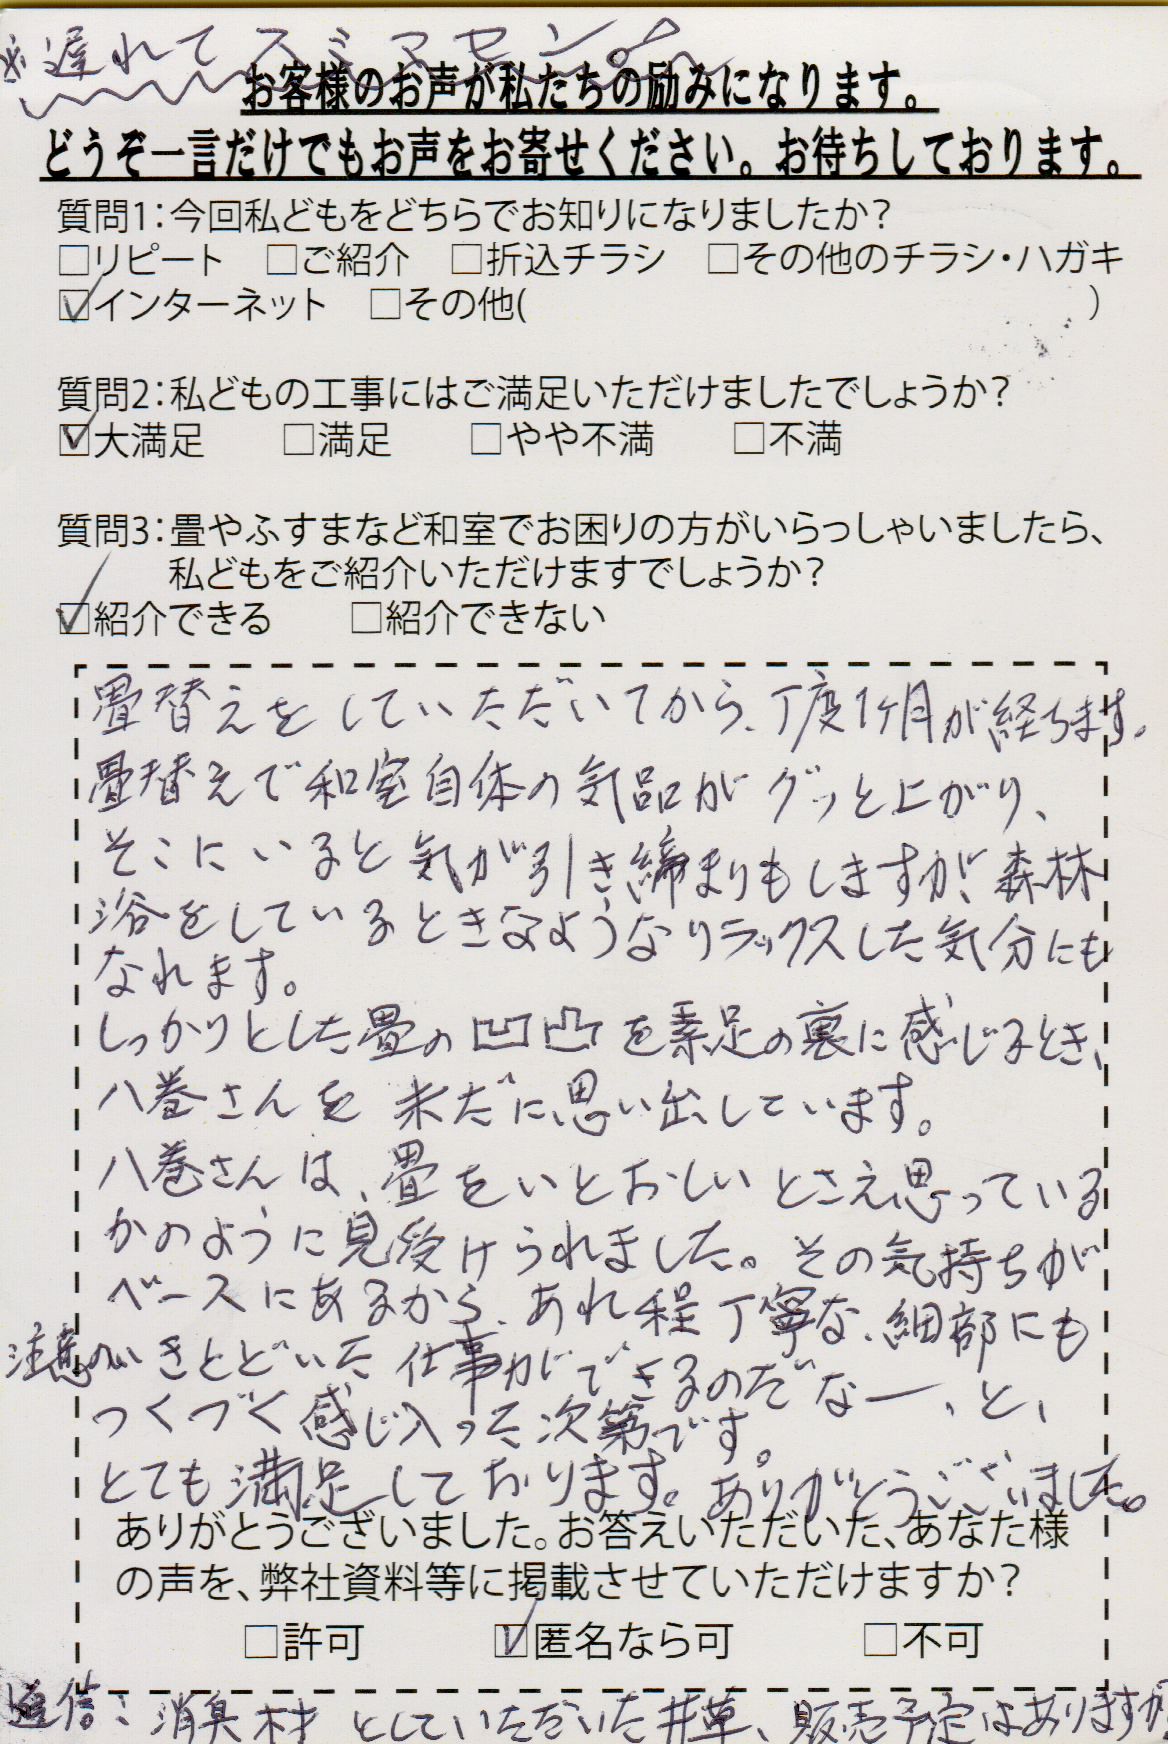 ※遅れてスミマセン。
お客様のお声が私たちの励みになります。
どうぞ一言だけでもお声をお寄せください。お待ちしております。
質問1：今回私どもをどちらでお知りになりましたか？
□リピート □ご紹介 □折込チラシ □その他のチラシ・ハガキ
☑インターネット □その他( )
質問2：私どもの工事にはご満足いただけましたでしょうか？
☑大満足 □満足 □やや不満 □不満
質問3：畳やふすまなど和室でお困りの方がいらっしゃいましたら、
私どもをご紹介いただけますでしょうか？
☑紹介できる □紹介できない
畳替えをしていただいてから、丁度1ヶ月が経ちます。
畳替えで和室自体の気品がグッと上がり、
そこにいると気が引き締まりもしますが、森林
浴をしているときなようなリラックスした気分にも
なれます。
しっかりとした畳の凹凸を素足の裏に感じるとき、
八巻さんを未だに思い出しています。
八巻さんは、畳をいとおしいとさえ思っている
かのように見受けられました。その気持ちが
ベースにあるから、あれ程丁寧な、細部にも
注意のいきとどいた仕事ができるのだなー、と、
つくづく感じ入った次第です。
とても満足しております。ありがとうございました。
ありがとうございました。お答えいただいた、あなた様
の声を、弊社資料等に掲載させていただけますか？
□許可 ☑匿名なら可 □不可
追信：消臭材としていただいた井草、販売予定はありますか